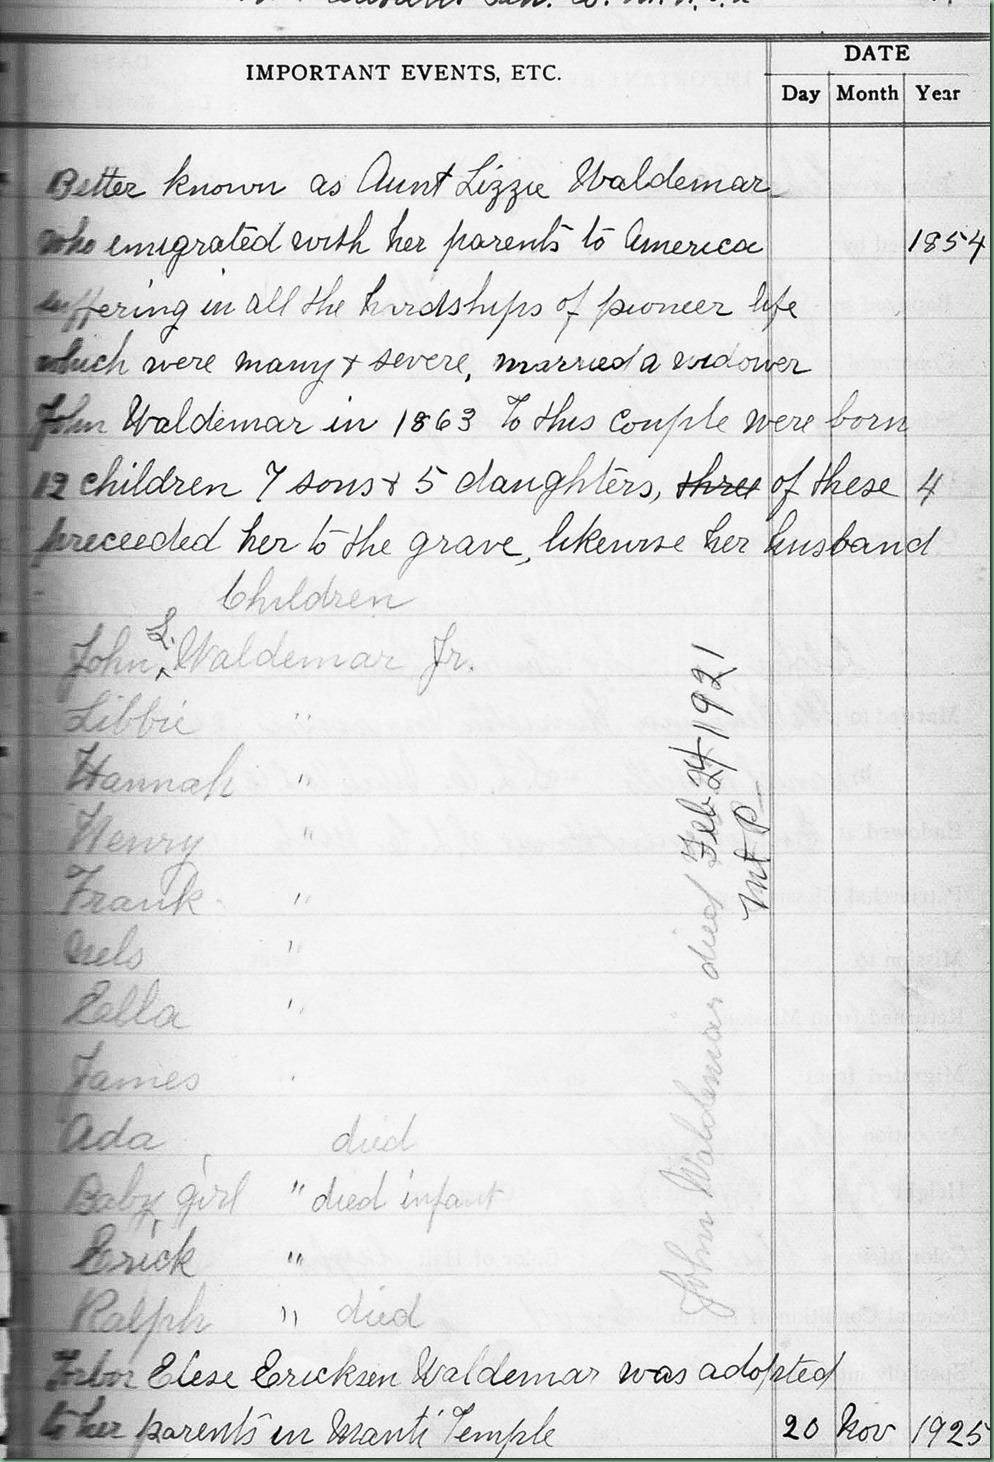 IMPORTANT EVENTS, ETC.
DATE
Day Month Year
Better known as Aunt Lizzie Waldemar
who emigrated with her parents to America 1854
suffering in all the hardships of pioneer life
which were many & severe, married a widower
John Waldemar in 1863 To this couple were born
12 children 7 sons & 5 daughters, three of these 4
preceeded her to the grave, likewise her husband
Children
John L. Waldemar Jr.
Libbie "
Hannah "
Henry "
Frank "
Nels "
Zella "
James
Ada died
Baby girl " died infant
Erick "
Ralph " died
John Waldemar died Feb 24 1921
Mt P—
Torbor Elese Ericksen Waldemar was adopted
to her parents in Manti Temple 20 Nov 1925